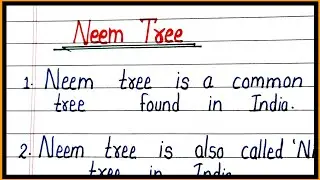 Neem Tree
1. Neem tree is a common
tree found in India.
2. Neem tree is also called
tree in India